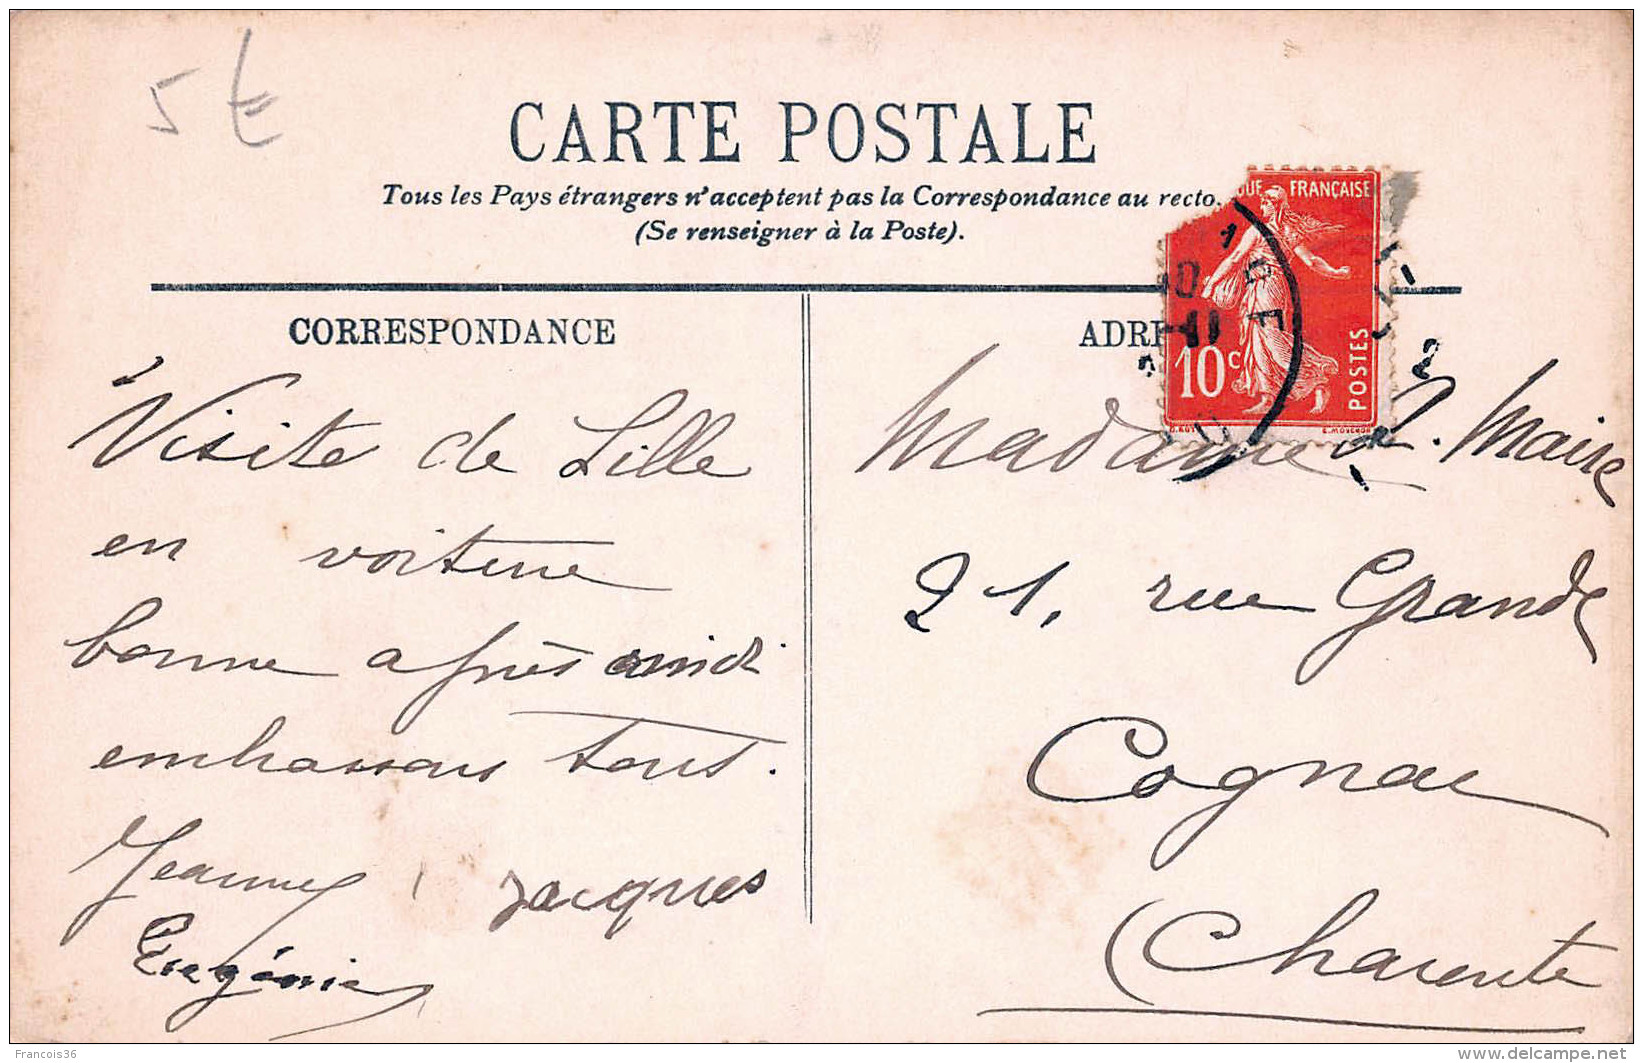 5 €
CARTE POSTALE
Tous les Pays étrangers n'acceptent pas la Correspondance au recto.
(Se renseigner à la Poste).
UE FRANÇAISE
10c
POSTES
CORRESPONDANCE
ADR
Visite de Lille
en voiture
bonne après midi
embrassons tous.
Jeanne Jacques
Eugénie
Madame L. Maire
21, rue Grande
Cognac
(Charente
Francois36
www.delcampe.net